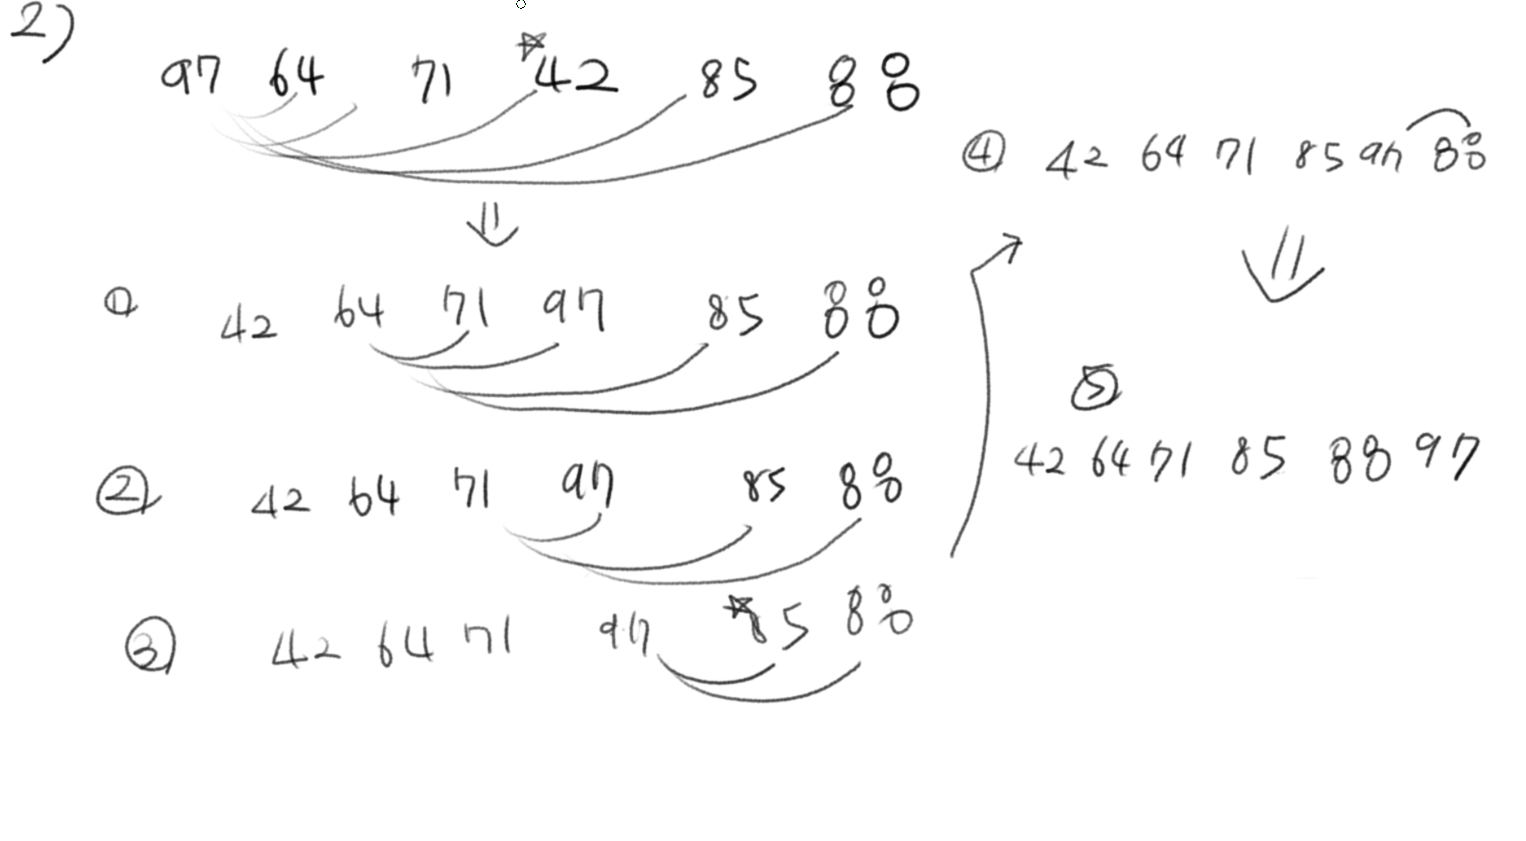 2)
97 64 71 ☆42 85 88
⇓
① 42 64 71 97 85 88
② 42 64 71 97 85 88
③ 42 64 71 97 ☆85 88
④ 42 64 71 85 97 88
⇓
⑤
42 64 71 85 88 97